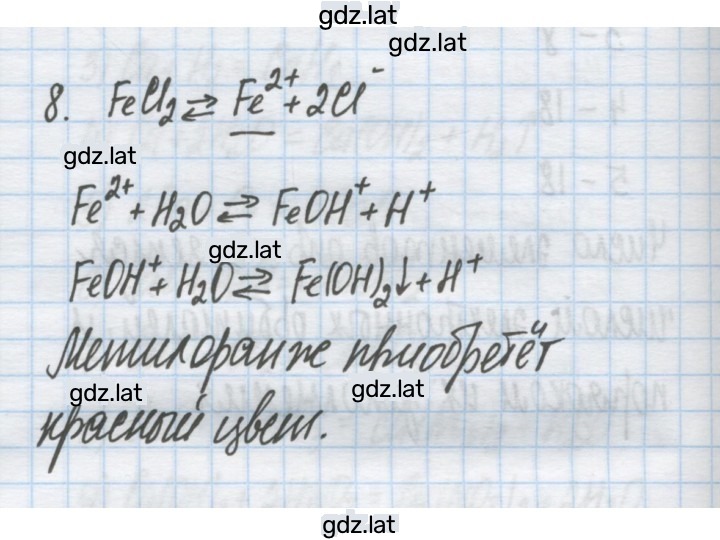 gdz.lat
gdz.lat
8. FeCl₂ ⇄ Fe²⁺ + 2Cl⁻
gdz.lat
Fe²⁺ + H₂O ⇄ FeOH⁺ + H⁺
gdz.lat
FeOH⁺ + H₂O ⇄ Fe(OH)₂↓ + H⁺
Метилоранж приобретёт
gdz.lat gdz.lat
красный цвет.
gdz.lat